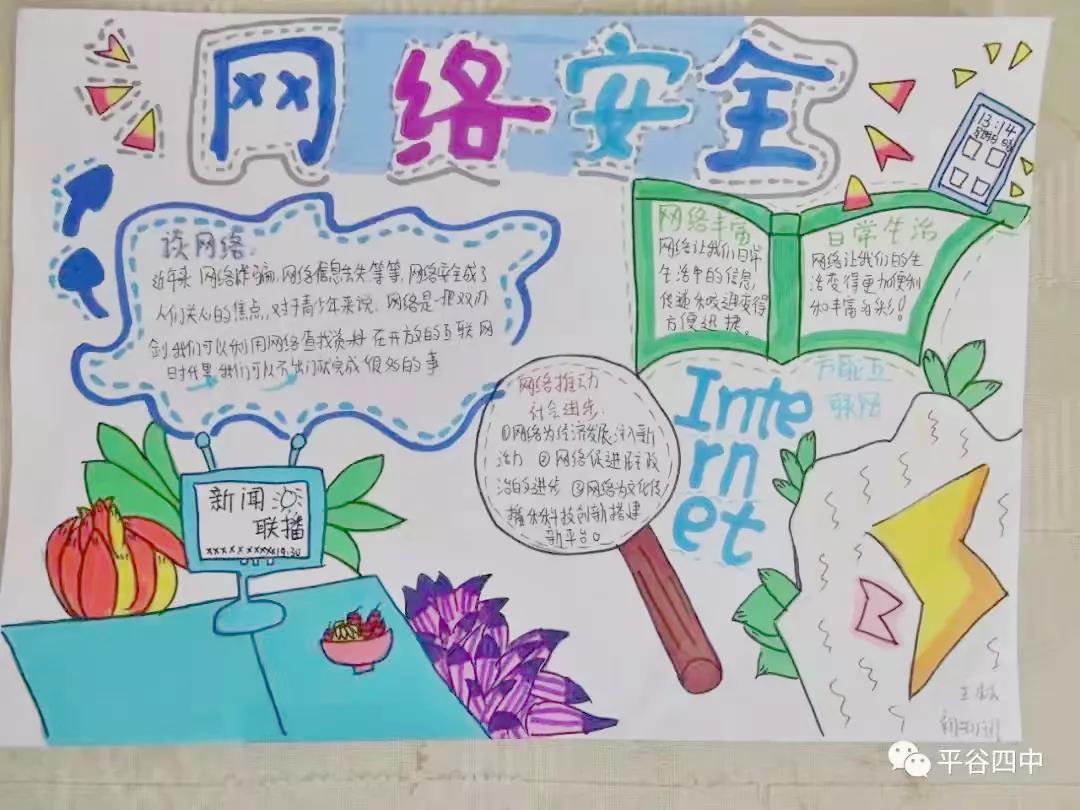 网络安全
13:14
谈网络:
近年来 网络诈骗,网络信息丢失等等,网络安全成了
人们关心的焦点,对于青少年来说,网络是一把双刃
剑,我们可以利用网络查找资料 在开放的互联网
时代里 我们可以不出门就完成很多的事
网络丰富
网络让我们日常
生活中的信息
传递和 变得
方便迅捷。
日常生活
网络让我们的生
活变得更加便利
和丰富多彩!
网络推动
社会进步:
①网络为经济发展注入新
活力 ②网络促进民主政
治的进步 ③网络为文化传
播和科技创新搭建
新平台。
Inte
rn
et
互
联网
新闻
联播
xxxxxxxxx19:30
平谷四中